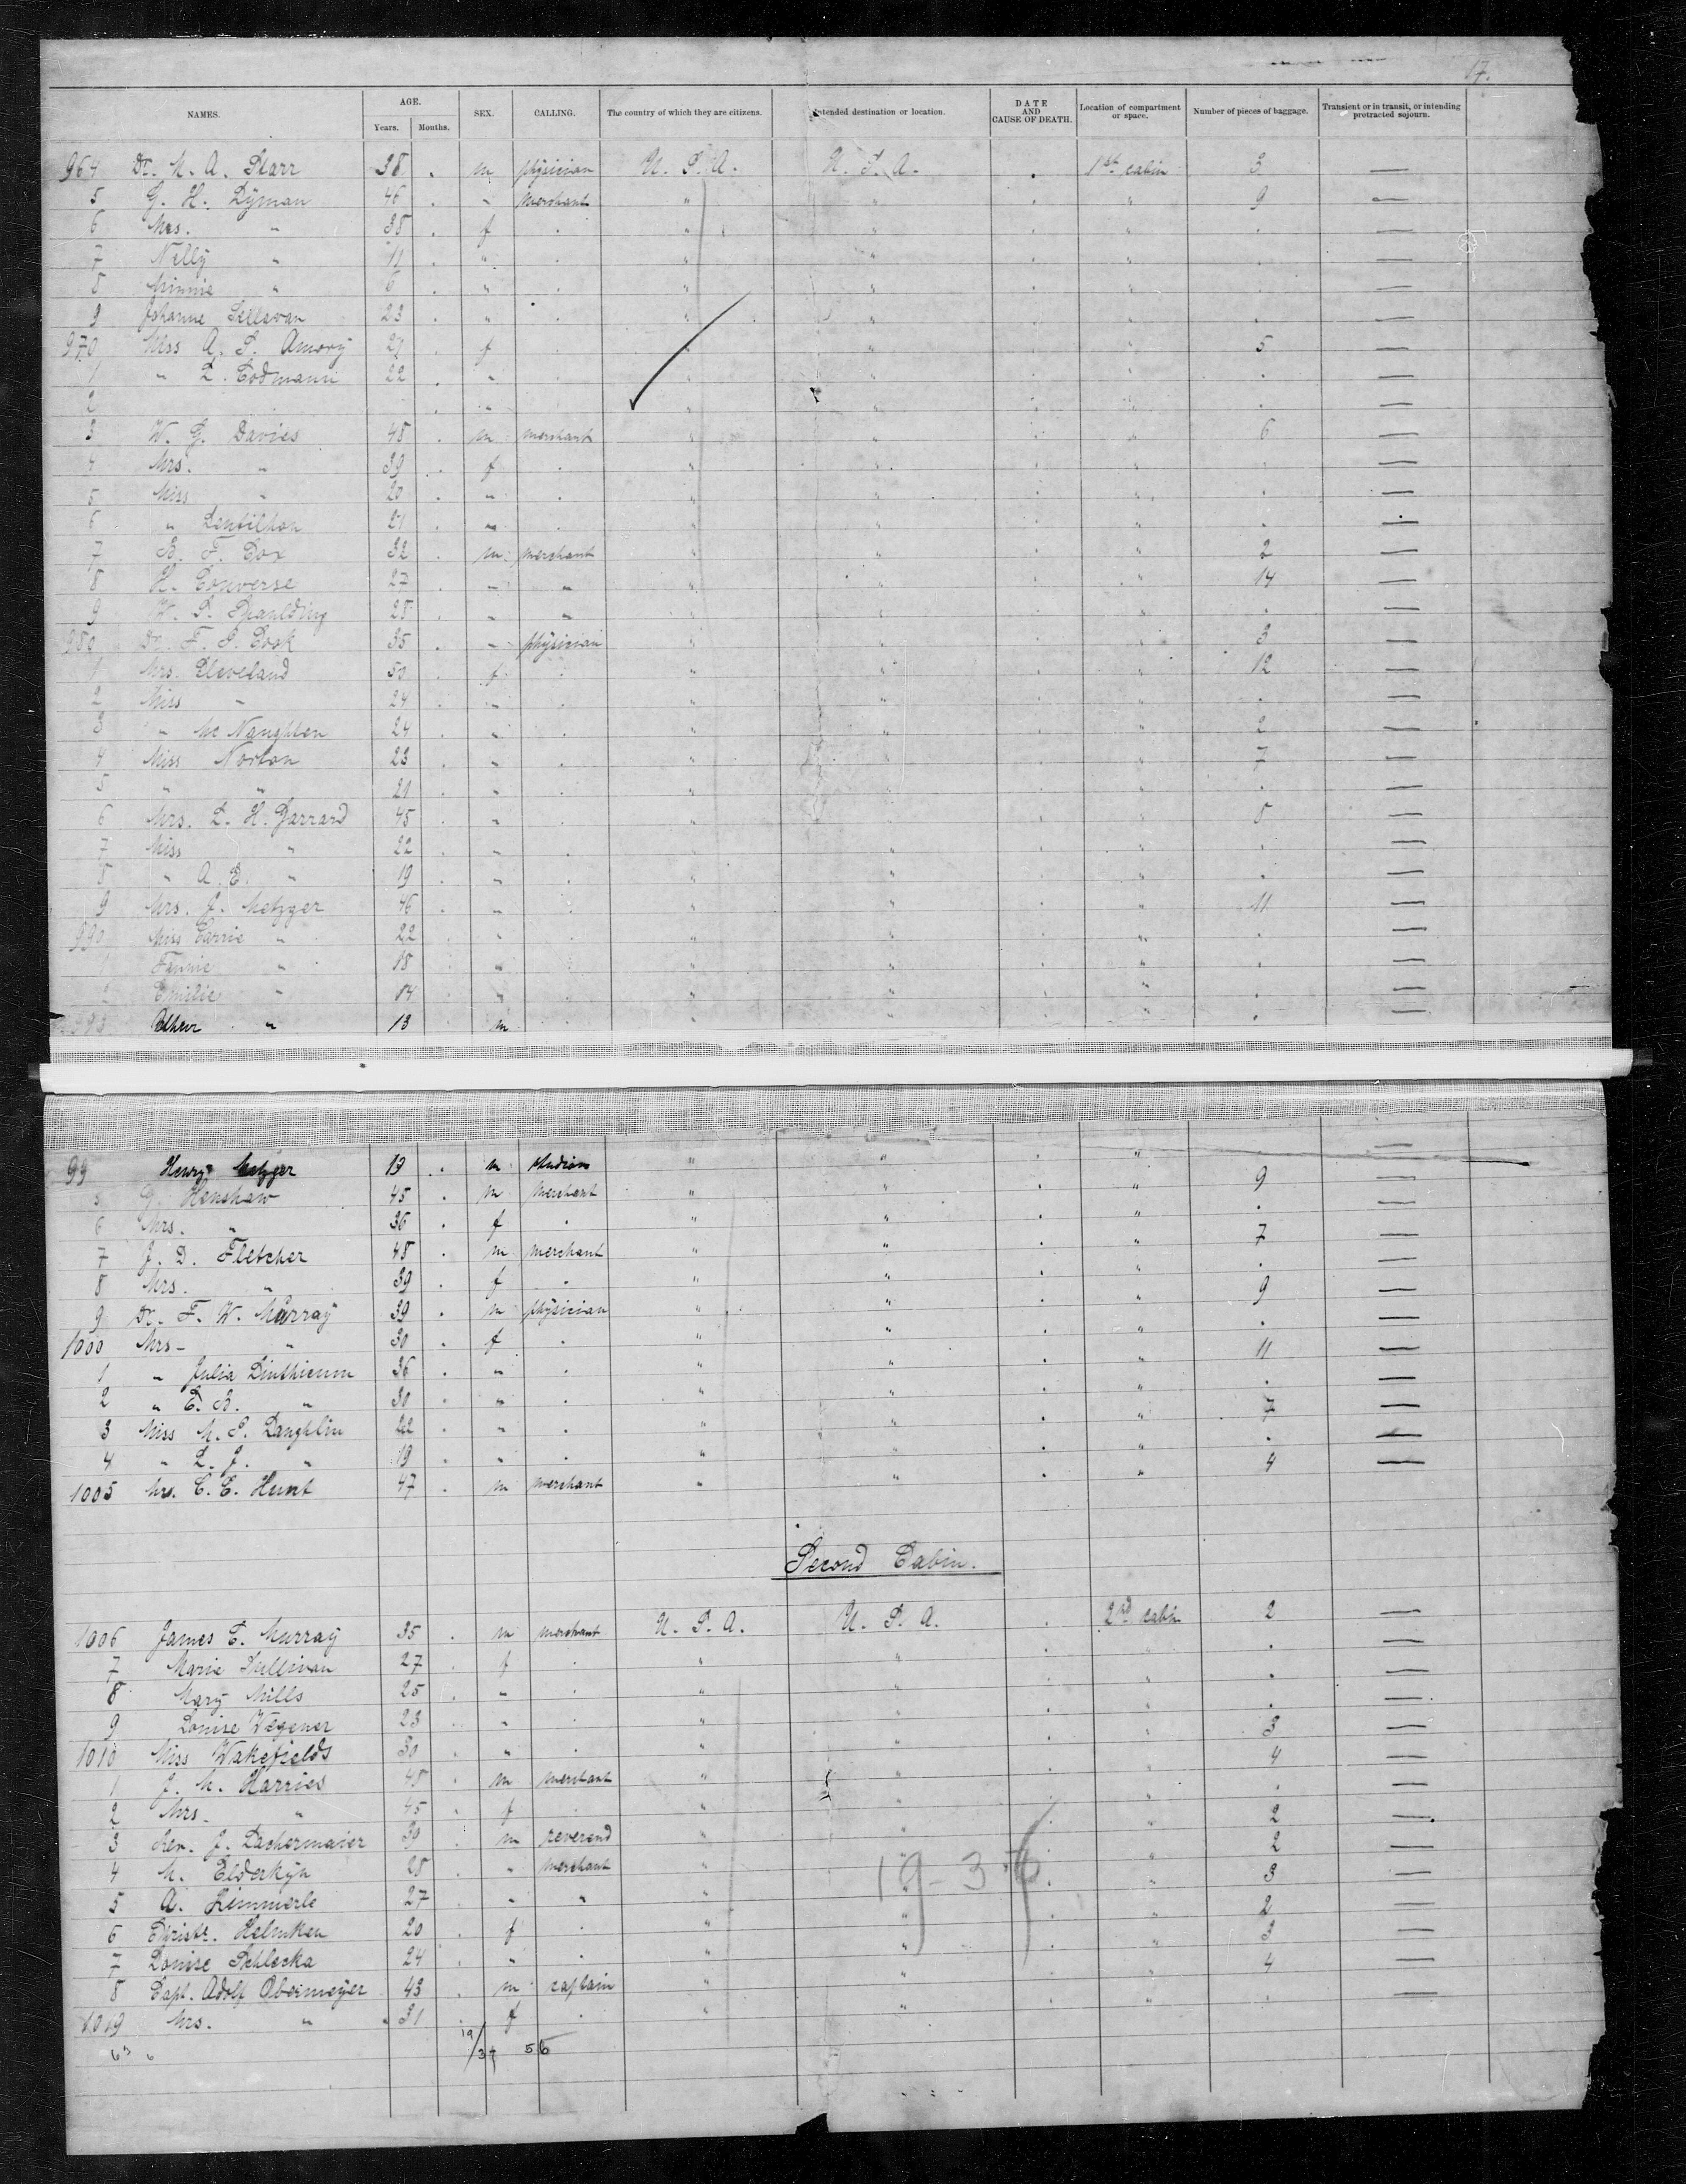 17.
NAMES. AGE. Years. Months. SEX. CALLING. The country of which they are citizens. Intended destination or location. DATE AND CAUSE OF DEATH. Location of compartment or space. Number of pieces of baggage. Transient or in transit, or intending protracted sojourn.
964 Dr. M. A. Starr 38 . m physician U. S. A. U. S. A. . 1st cabin 3 —
5 G. H. Lyman 46 . " merchant " " . " 9 —
6 Mrs. " 38 . f . " " . " . —
7 Nelly " 11 . " . " " . " . —
8 Minnie " 6 . " . " " . " . —
9 Johanne 23 . " . " " . " . —
970 Miss A. S. Amory 21 . f . " " . " 5 —
1 " L. Codmann 22 . " . " " . " . —
2 . " . " " . " . —
3 W. G. Davies 48 . m merchant " " . " 6 —
4 Mrs. " 39 . f . " " . " . —
5 Miss " 20 . " . " " . " . —
6 " Dentilhon 21 . " . " " . " . —
7 F. Cox 32 . m merchant " " . " 2 —
8 H. Converse 27 . " " " " . " 14 —
9 W. S. Spaulding 28 . " " " " . " . —
980 Dr. F. S. Cook 35 . " physician " " . " 3 —
1 Mrs. Cleveland 50 . f . " " . " 12 —
2 Miss " 24 . " . " " . " . —
3 " Mc Naughten 24 . " . " " . " 2 —
4 Miss Norton 23 . " . " " . " 7 —
5 " " 21 . " . " " . " . —
6 Mrs. L. H. Garrard 45 . " . " " . " 8 —
7 Miss " 22 . " . " " . " . —
8 " A. E. " 19 . " . " " . " . —
9 Mrs. J. Metzger 46 . " . " " . " 11 —
990 Miss Carrie " 22 . " . " " . " . —
1 Fannie " 18 . " . " " . " . —
2 Emilie " 14 . " . " " . " . —
993 " 13 m . " " . " . —
99 Henry Metzger 13 . m " " . " —
5 G. Henshaw 45 . m merchant " " . " 9 —
6 Mrs. " 36 . f . " " . " . —
7 J. D. Fletcher 48 . m merchant " " . " 7 —
8 Mrs. " 39 . f . " " . " . —
9 Dr. F. W. Murray 39 . m physician " " . " 9 —
1000 Mrs. " 30 . f . " " . " . —
1 " Julia Linthicum 36 . " . " " . " 11 —
2 " C. B. " 30 . " . " " . " . —
3 Miss M. S. Laughlin 22 . " . " " . " 7 —
4 " L. J. " 19 . " . " " . " . —
1005 Mr. C. E. Hunt 47 . m merchant " " . " 4 —
Second Cabin.
1006 James C. Murray 35 . m merchant U. S. A. U. S. A. . 2nd cabin 2 —
7 Marie Sullivan 27 . f . " " . " . —
8 Mary Mills 25 . " . " " . " . —
9 Louise Wegener 23 . " . " " . " . —
1010 Miss Wakefields 30 . " . " " . " 3 —
1 J. M. Harries 48 . m merchant " " . " 4 —
2 Mrs. " 45 . f . " " . " . —
3 Rev. J. Lachermaier 39 . m reverend " " . " 2 —
4 M. Elderkyn 28 . " merchant " " . " 2 —
5 A. Kimmerle 27 . " " " " . " 3 —
6 Christe. Helmken 20 . f . " " . " 2 —
7 Louise Schlecka 24 . " . " " . " 3 —
8 Capt. Adolf Obermeyer 43 . m captain " " . " 4 —
1019 Mrs. " 31 . f . " " . " . —
19-3
19/37 56